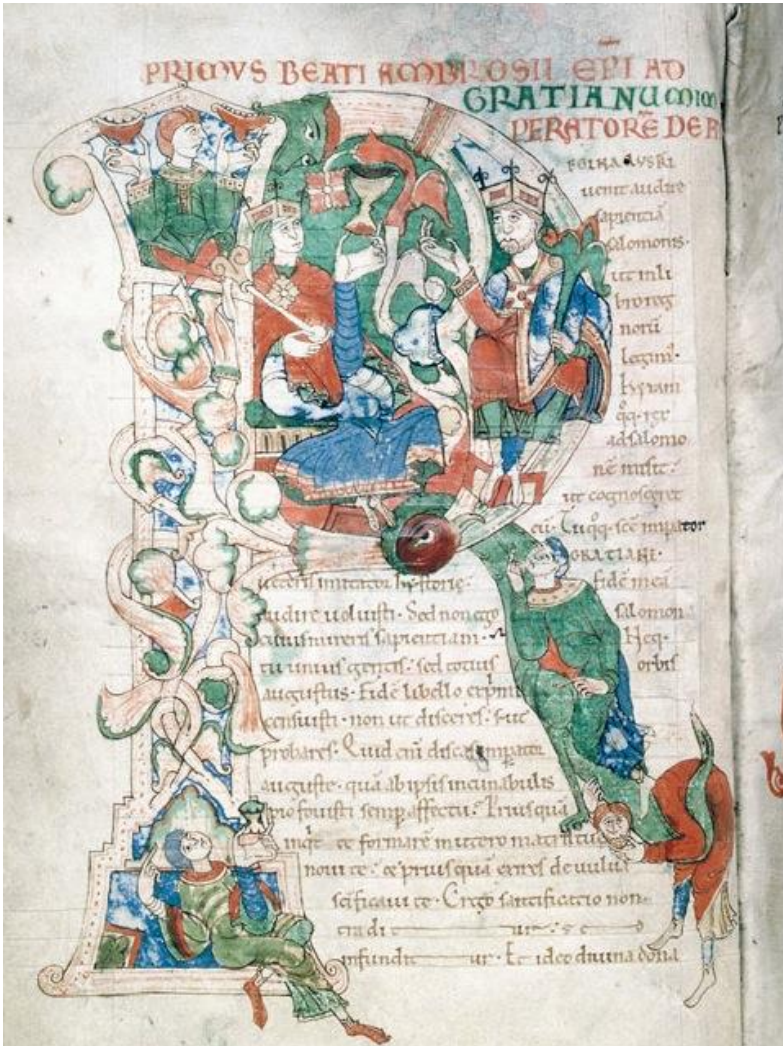 PRIMVS BEATI AMBROSII EP̄I AD
GRATIANUM IM
PERATORĒ DE F
EGINA AVSTRI
uenit audire
sapientiā
salomonis·
ut in li
bro reg
norū
legim'·
hyram
qoq· rex
ad salomo
nē misit·
ut cognosceret
eū· Tu qoq· scē impator
GRATIANE·
ueteris imitator hystorie· fidē meā
audire uoluisti· Sed non ego salomon
cuius mireris sapientiam· Neq·
tu unius gentis· sed totius orbis
augustus· Fidē libello exprimi
censuisti· non ut disceres· s ut
probares· Quid enī discas impator
auguste· quā ab ipsis incunabulis
pio fouisti semp affectu· Priusquā
inqt te formarē in utero matris tue
noui te· et priusquā exires de uulua
scificaui te· Ergo sanctificatio non
tradit ur·
infundit ur· Et ideo diuina dona